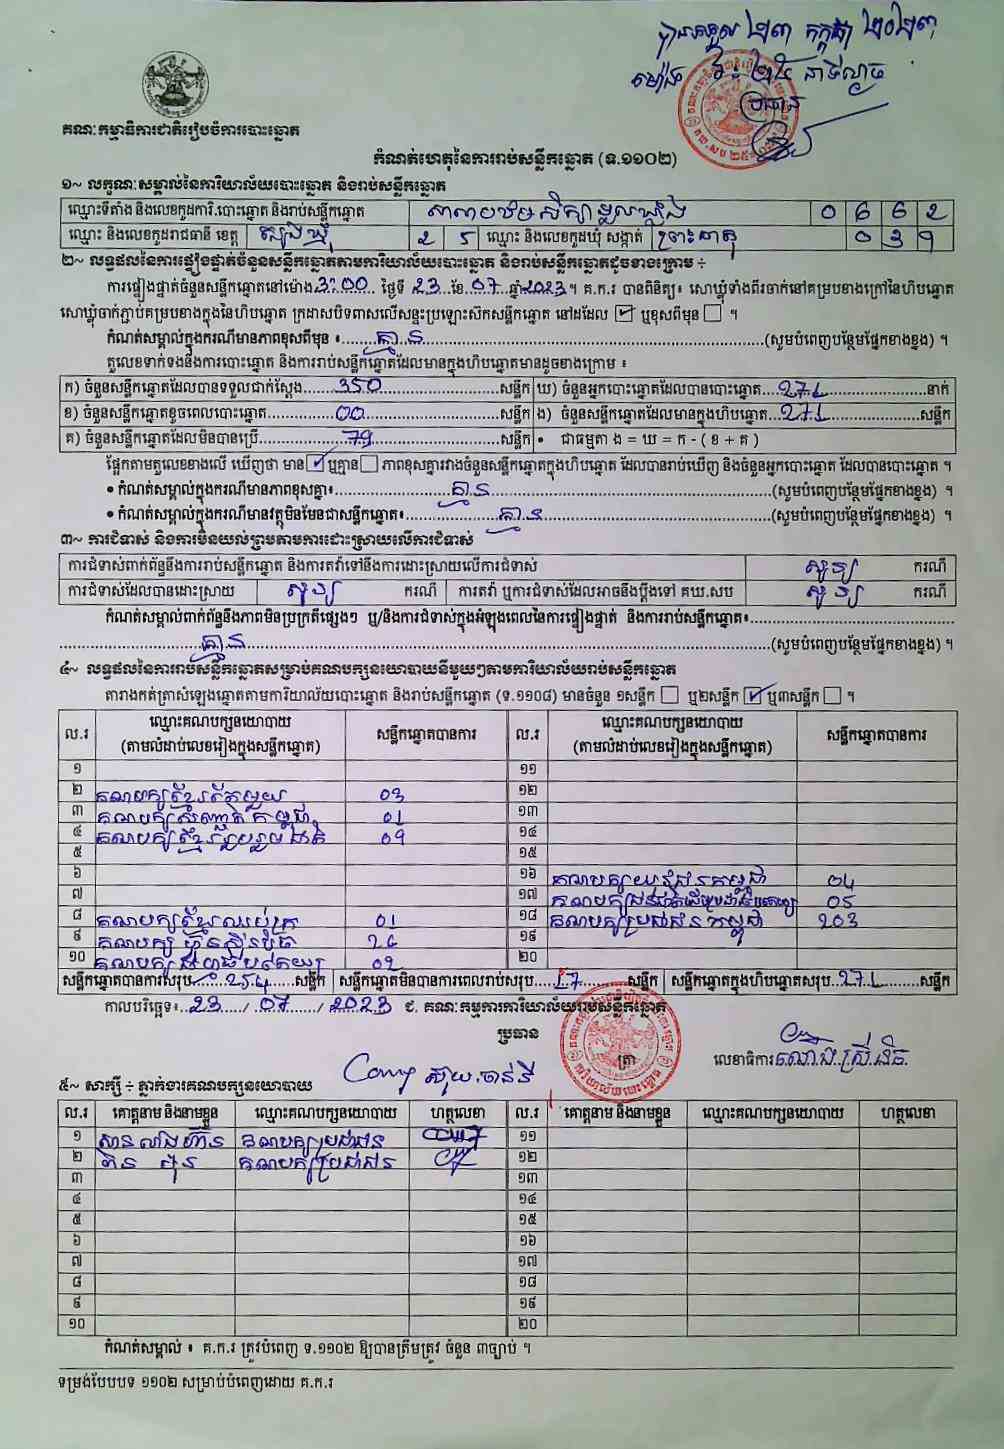 បានទទួល ២៣ កក្កដា ២០២៣
ម៉ោង
នាទីល្ងាច
ប្រធាន
គណៈកម្មាធិការជាតិរៀបចំការបោះឆ្នោត
កំណត់ហេតុនៃការរាប់សន្លឹកឆ្នោត (ទ.១១០២)
១~ លក្ខណៈសម្គាល់នៃការិយាល័យបោះឆ្នោត និងរាប់សន្លឹកឆ្នោត
ឈ្មោះទីតាំង និងលេខកូដការិ.បោះឆ្នោត និងរាប់សន្លឹកឆ្នោត សាលាបឋមសិក្សា 0 6 6 2
ឈ្មោះ និងលេខកូដរាជធានី ខេត្ត ត្បូងឃ្មុំ 2 5 ឈ្មោះ និងលេខកូដឃុំ សង្កាត់ ព្រះធាតុ 0 3 9
២~ លទ្ធផលនៃការផ្ទៀងផ្ទាត់ចំនួនសន្លឹកឆ្នោតតាមការិយាល័យបោះឆ្នោត និងរាប់សន្លឹកឆ្នោតដូចខាងក្រោម ÷
ការផ្ទៀងផ្ទាត់ចំនួនសន្លឹកឆ្នោតនៅម៉ោង 3:00 ថ្ងៃទី 23 ខែ 07 ឆ្នាំ 2023 ។ គ.ក.រ បានពិនិត្យ៖ សោឃ្លុំទាំងពីរចាក់នៅគម្របខាងក្រៅនៃហិបឆ្នោត
សោឃ្លុំចាក់ភ្ជាប់គម្របខាងក្នុងនៃហិបឆ្នោត ក្រដាសបិទពាសលើសន្ទះប្រឡោះស៊កសន្លឹកឆ្នោត នៅដដែល ☑ ឬខុសពីមុន ☐ ។
កំណត់សម្គាល់ក្នុងករណីមានភាពខុសពីមុន ៖ គ្មាន (សូមបំពេញបន្ថែមផ្នែកខាងខ្នង) ។
តួលេខទាក់ទងនឹងការបោះឆ្នោត និងការរាប់សន្លឹកឆ្នោតដែលមានក្នុងហិបឆ្នោតមានដូចខាងក្រោម ៖
ក) ចំនួនសន្លឹកឆ្នោតដែលបានទទួលជាក់ស្តែង 350 សន្លឹក ឃ) ចំនួនអ្នកបោះឆ្នោតដែលបានបោះឆ្នោត 271 នាក់
ខ) ចំនួនសន្លឹកឆ្នោតខូចពេលបោះឆ្នោត 00 សន្លឹក ង) ចំនួនសន្លឹកឆ្នោតដែលមានក្នុងហិបឆ្នោត 271 សន្លឹក
គ) ចំនួនសន្លឹកឆ្នោតដែលមិនបានប្រើ 79 សន្លឹក • ជាធម្មតា ង = ឃ = ក - ( ខ + គ )
ផ្អែកតាមតួលេខខាងលើ ឃើញថា មាន ☑ ឬគ្មាន ☐ ភាពខុសគ្នារវាងចំនួនសន្លឹកឆ្នោតក្នុងហិបឆ្នោត ដែលបានរាប់ឃើញ និងចំនួនអ្នកបោះឆ្នោត ដែលបានបោះឆ្នោត ។
• កំណត់សម្គាល់ក្នុងករណីមានភាពខុសគ្នា៖ គ្មាន (សូមបំពេញបន្ថែមផ្នែកខាងខ្នង) ។
• កំណត់សម្គាល់ក្នុងករណីមានវត្ថុមិនមែនជាសន្លឹកឆ្នោត៖ គ្មាន (សូមបំពេញបន្ថែមផ្នែកខាងខ្នង) ។
៣~ ការជំទាស់ និងការមិនយល់ព្រមតាមការដោះស្រាយលើការជំទាស់
ការជំទាស់ពាក់ព័ន្ធនឹងការរាប់សន្លឹកឆ្នោត និងការតវ៉ាទៅនឹងការដោះស្រាយលើការជំទាស់ សូន្យ ករណី
ការជំទាស់ដែលបានដោះស្រាយ សូន្យ ករណី ការតវ៉ា ឬការជំទាស់ដែលអាចនឹងប្តឹងទៅ គឃ.សប សូន្យ ករណី
កំណត់សម្គាល់ពាក់ព័ន្ធនឹងភាពមិនប្រក្រតីផ្សេងៗ ឬ/និងការជំទាស់ក្នុងអំឡុងពេលនៃការផ្ទៀងផ្ទាត់ និងការរាប់សន្លឹកឆ្នោត៖
គ្មាន (សូមបំពេញបន្ថែមផ្នែកខាងខ្នង) ។
៤~ លទ្ធផលនៃការរាប់សន្លឹកឆ្នោតសម្រាប់គណបក្សនយោបាយនីមួយៗតាមការិយាល័យរាប់សន្លឹកឆ្នោត
តារាងកត់ត្រាសំឡេងឆ្នោតតាមការិយាល័យបោះឆ្នោត និងរាប់សន្លឹកឆ្នោត (ទ.១១០៨) មានចំនួន ១សន្លឹក ☐ ឬ២សន្លឹក ☑ ឬ៣សន្លឹក ☐ ។
ល.រ ឈ្មោះគណបក្សនយោបាយ (តាមលំដាប់លេខរៀងក្នុងសន្លឹកឆ្នោត) សន្លឹកឆ្នោតបានការ ល.រ ឈ្មោះគណបក្សនយោបាយ (តាមលំដាប់លេខរៀងក្នុងសន្លឹកឆ្នោត) សន្លឹកឆ្នោតបានការ
១ ១១
២ គណបក្សខ្មែរតែមួយ 03 ១២
៣ គណបក្សសញ្ជាតិកម្ពុជា 01 ១៣
៤ គណបក្សខ្មែររួបរួមជាតិ 09 ១៤
៥ ១៥
៦ ១៦ គណបក្សយុវជនកម្ពុជា 04
៧ ១៧ គណបក្សជនជាតិដើមប្រជាធិបតេយ្យ 05
៨ គណបក្សខ្មែរឈប់ក្រ 01 ១៨ គណបក្សប្រជាជនកម្ពុជា 203
៩ គណបក្សហ៊្វុនស៊ិនប៉ិច 26 ១៩
១០ គណបក្ស 02 ២០
សន្លឹកឆ្នោតបានការសរុប 254 សន្លឹក សន្លឹកឆ្នោតមិនបានការពេលរាប់សរុប 17 សន្លឹក សន្លឹកឆ្នោតក្នុងហិបឆ្នោតសរុប 271 សន្លឹក
កាលបរិច្ឆេទ៖ 23 / 07 / 2023 ជ. គណៈកម្មការការិយាល័យរាប់សន្លឹកឆ្នោត
ប្រធាន ត្រា លេខាធិការ
៥~ សាក្សី ÷ ភ្នាក់ងារគណបក្សនយោបាយ
ល.រ គោត្តនាម និងនាមខ្លួន ឈ្មោះគណបក្សនយោបាយ ហត្ថលេខា ល.រ គោត្តនាម និងនាមខ្លួន ឈ្មោះគណបក្សនយោបាយ ហត្ថលេខា
១ គណបក្សប្រជាជន ១១
២ គណបក្សប្រជាជន ១២
៣ ១៣
៤ ១៤
៥ ១៥
៦ ១៦
៧ ១៧
៨ ១៨
៩ ១៩
១០ ២០
កំណត់សម្គាល់ ៖ គ.ក.រ ត្រូវបំពេញ ទ.១១០២ ឱ្យបានត្រឹមត្រូវ ចំនួន ៣ច្បាប់ ។
ទម្រង់បែបបទ ១១០២ សម្រាប់បំពេញដោយ គ.ក.រ